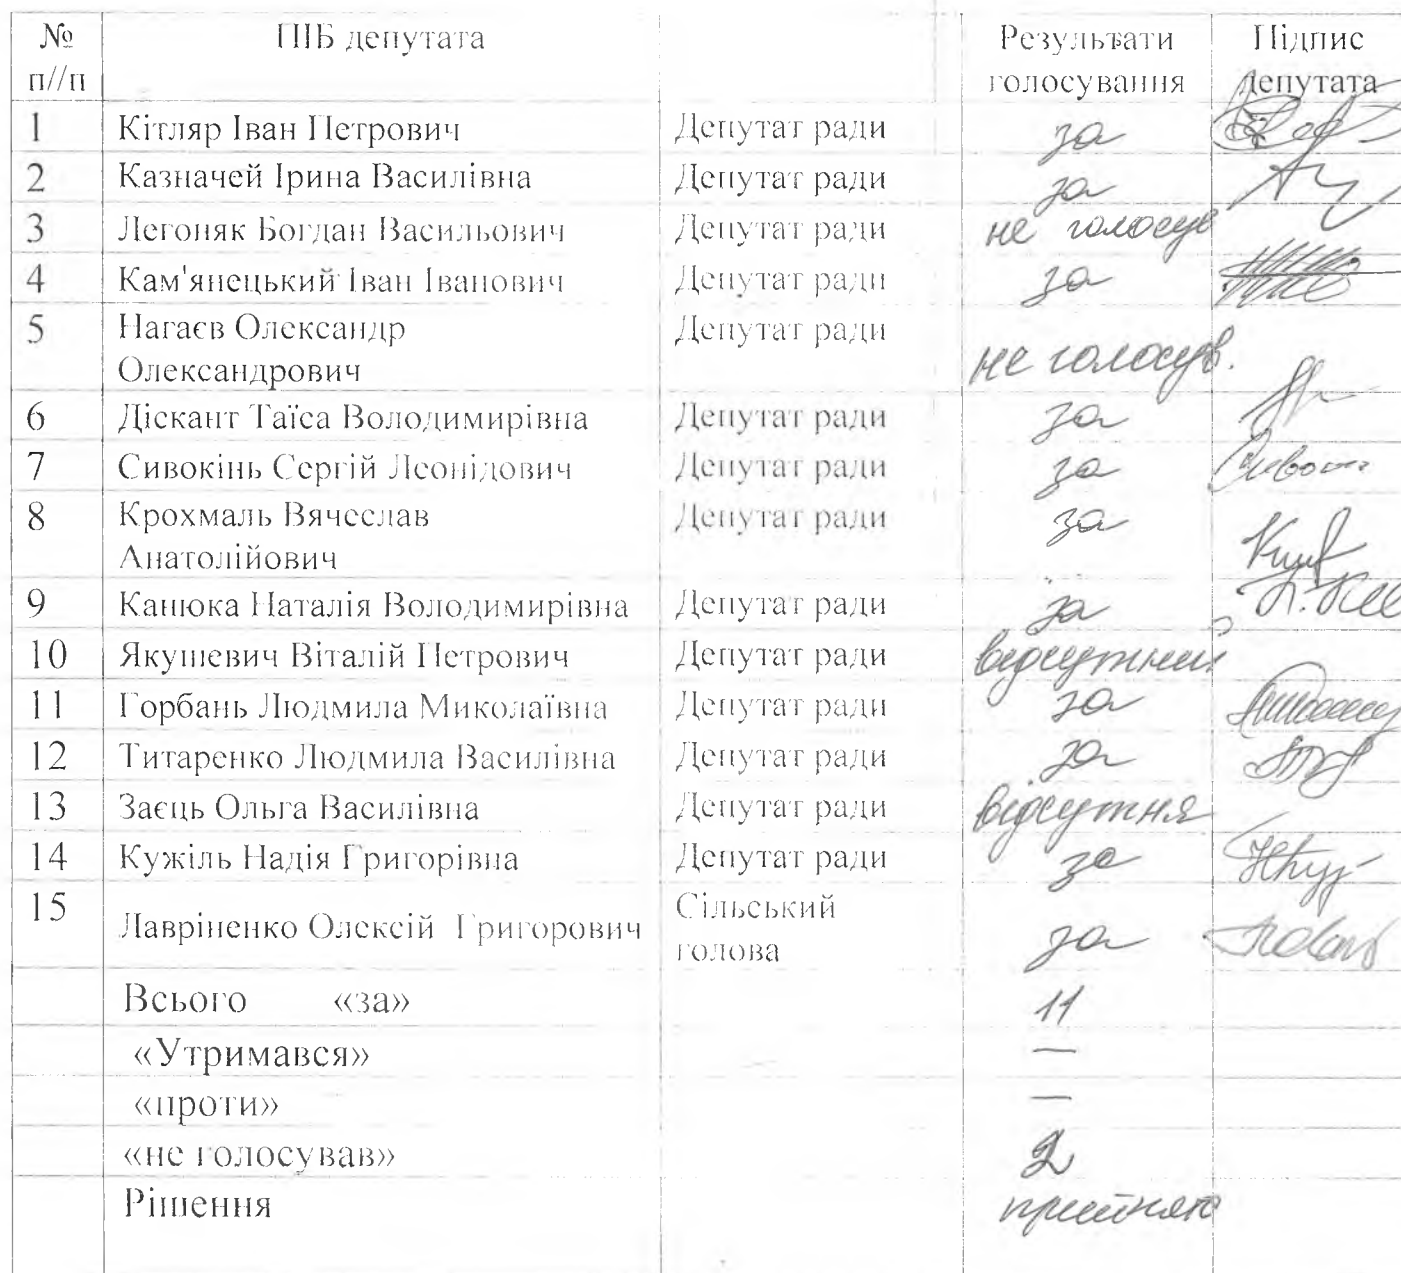 № ПІБ депутата Результати Підпис
п//п голосування депутата
1 Кітляр Іван Петрович Депутат ради за
2 Казначей Ірина Василівна Депутат ради за
3 Легоняк Богдан Васильович Депутат ради не голосув
4 Кам'янецький Іван Іванович Депутат ради за
5 Нагаєв Олександр Депутат ради
Олександрович не голосув.
6 Діскант Таїса Володимирівна Депутат ради за
7 Сивокінь Сергій Леонідович Депутат ради за
8 Крохмаль Вячеслав Депутат ради за
Анатолійович
9 Канюка Наталія Володимирівна Депутат ради за
10 Якушевич Віталій Петрович Депутат ради відсутний
11 Горбань Людмила Миколаївна Депутат ради за
12 Титаренко Людмила Василівна Депутат ради за
13 Заєць Ольга Василівна Депутат ради відсутня
14 Кужіль Надія Григорівна Депутат ради за
15 Лавріненко Олексій Григорович Сільський за
голова
Всього «за» 11
«Утримався» —
«проти» —
«не голосував» 2
Рішення прийнято